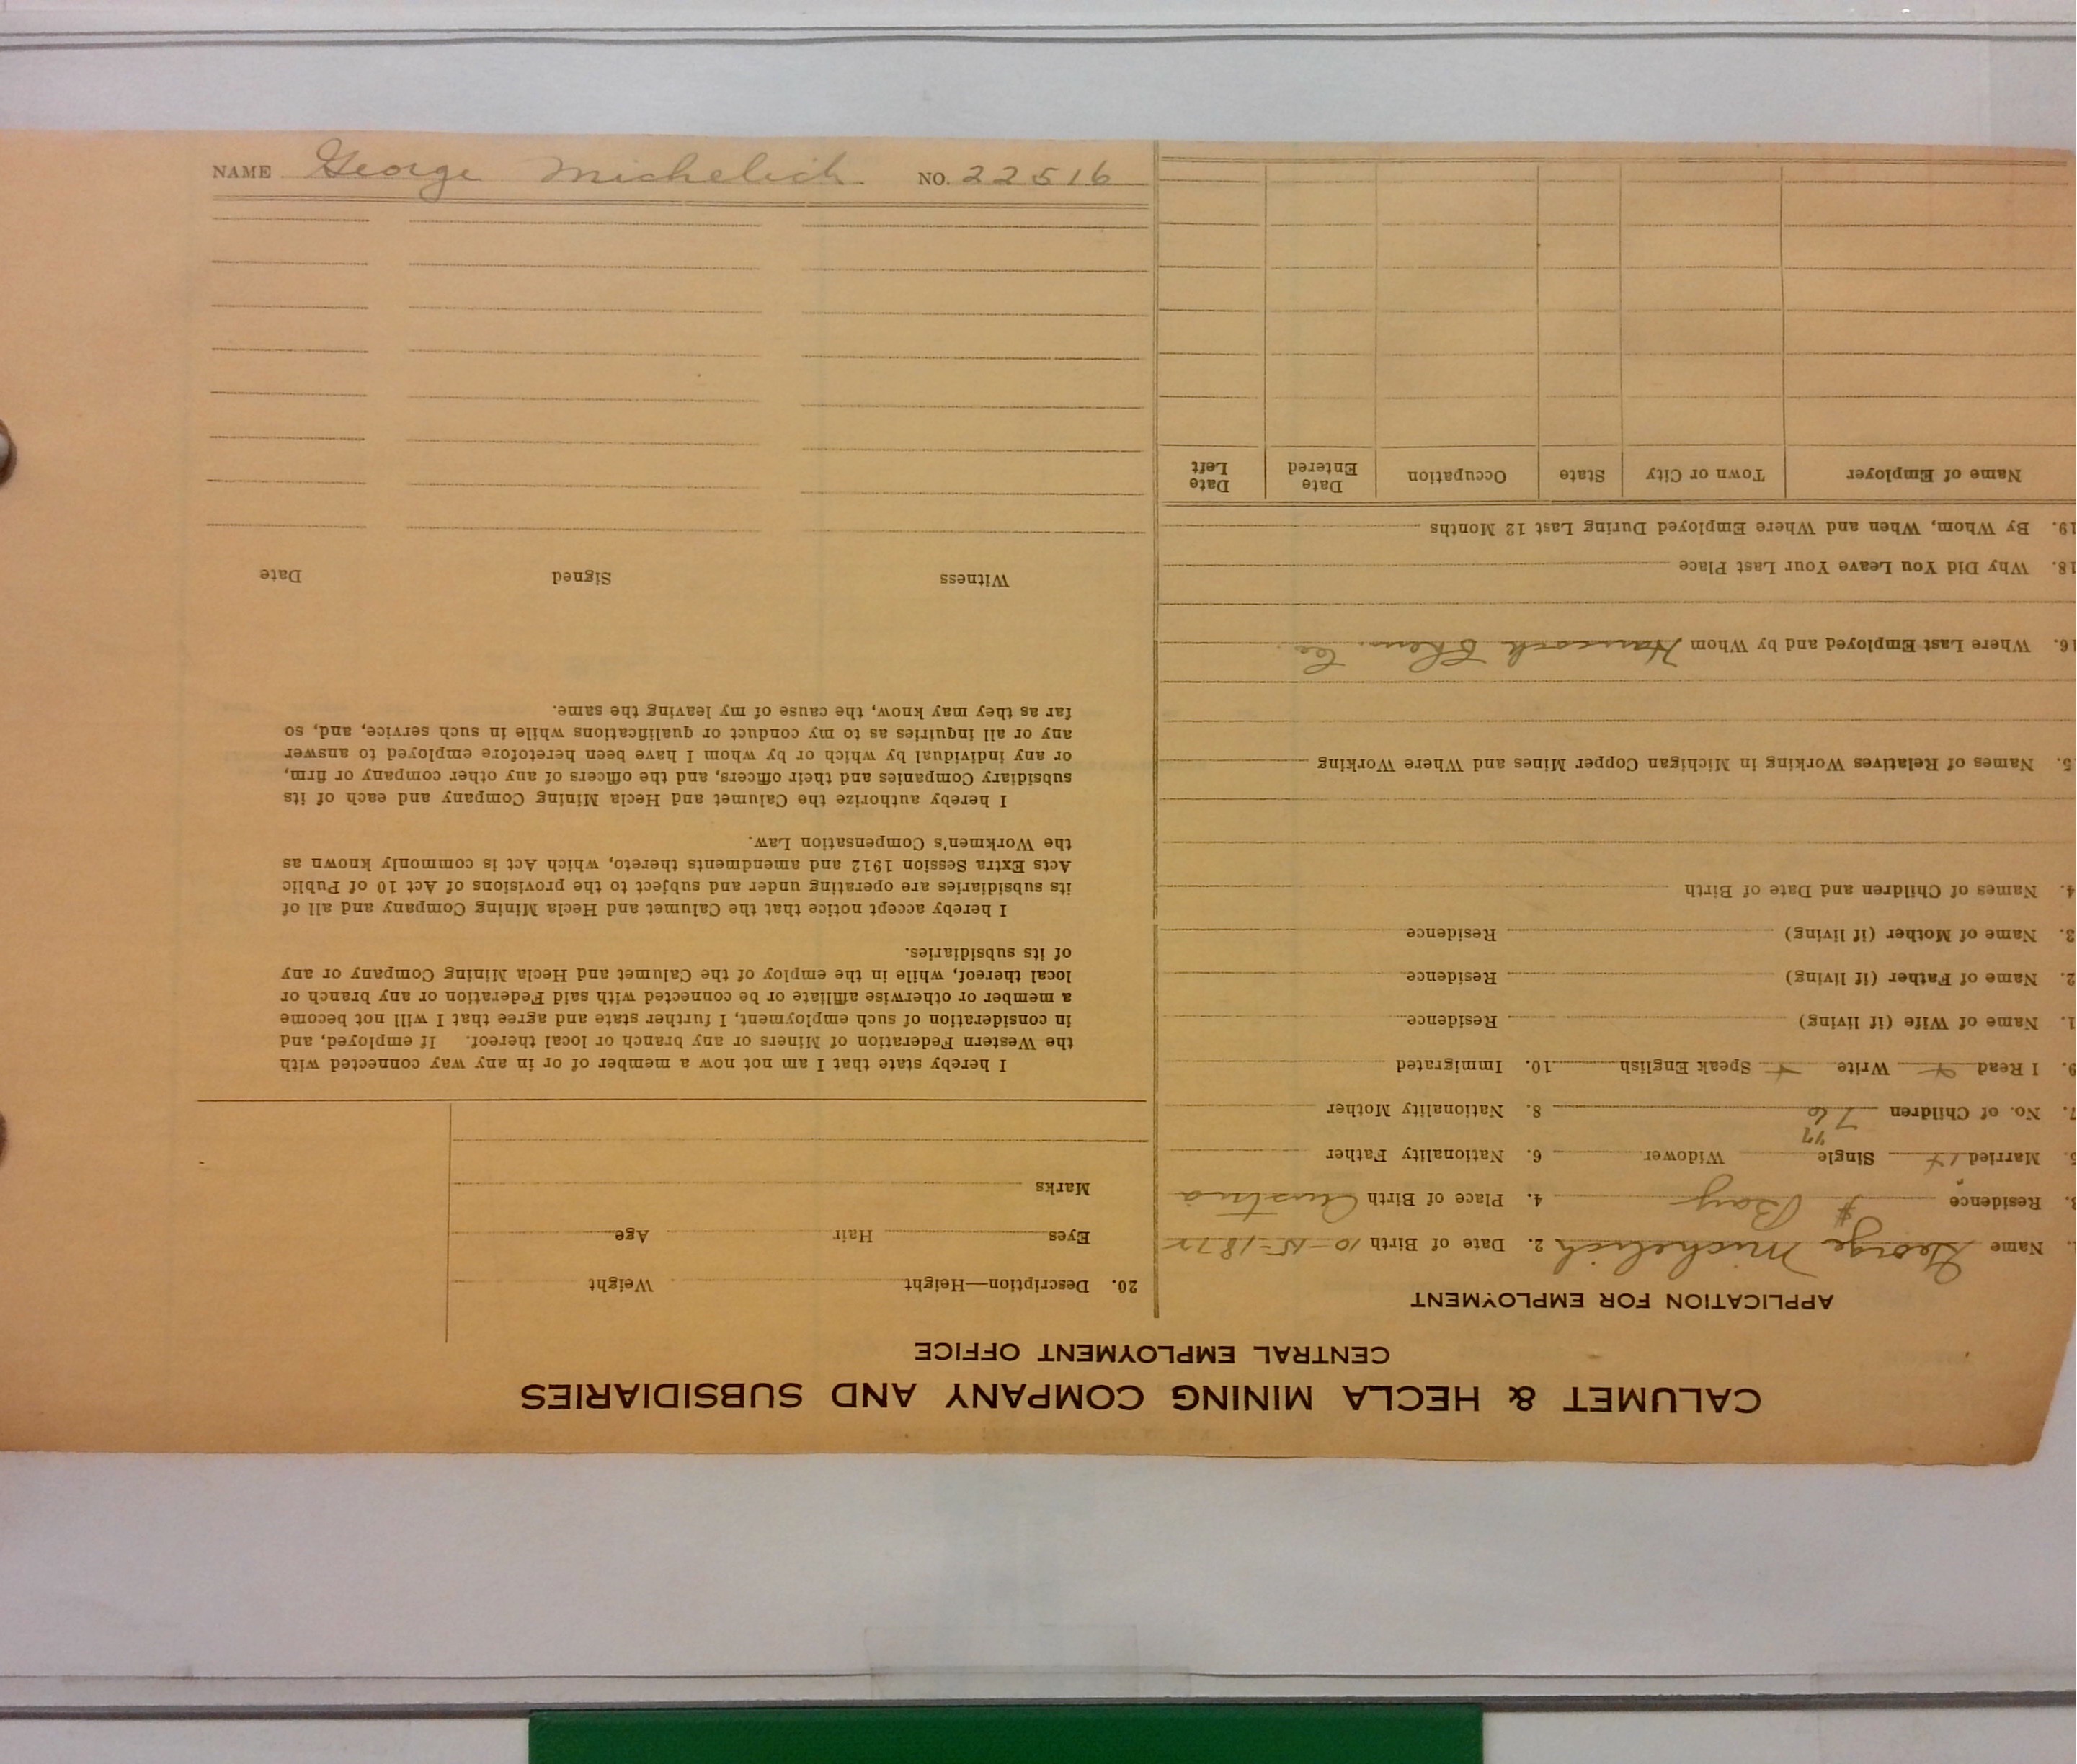 NAME George Michelich NO. 22516
CALUMET & HECLA MINING COMPANY AND SUBSIDIARIES
CENTRAL EMPLOYMENT OFFICE
APPLICATION FOR EMPLOYMENT
1. Name George Michelich 2. Date of Birth 10-15-187
3. Residence # Bay 4. Place of Birth Austria
5. Married Single Widower 6. Nationality Father
7. No. of Children 8. Nationality Mother
9. I Read Write Speak English 10. Immigrated
1. Name of Wife (if living) Residence
2. Name of Father (if living) Residence
3. Name of Mother (if living) Residence
4. Names of Children and Date of Birth
5. Names of Relatives Working in Michigan Copper Mines and Where Working
16. Where Last Employed and by Whom Hancock Chem. Co.
18. Why Did You Leave Your Last Place
19. By Whom, When and Where Employed During Last 12 Months
Name of Employer Town or City State Occupation Date Entered Date Left
20. Description—Height Weight
Eyes Hair Age
Marks
I hereby state that I am not now a member of or in any way connected with
the Western Federation of Miners or any branch or local thereof. If employed, and
in consideration of such employment, I further state and agree that I will not become
a member or otherwise affiliate or be connected with said Federation or any branch or
local thereof, while in the employ of the Calumet and Hecla Mining Company or any
of its subsidiaries.
I hereby accept notice that the Calumet and Hecla Mining Company and all of
its subsidiaries are operating under and subject to the provisions of Act 10 of Public
Acts Extra Session 1912 and amendments thereto, which Act is commonly known as
the Workmen's Compensation Law.
I hereby authorize the Calumet and Hecla Mining Company and each of its
subsidiary Companies and their officers, and the officers of any other company or firm,
or any individual by which or by whom I have been heretofore employed to answer
any or all inquiries as to my conduct or qualifications while in such service, and, so
far as they may know, the cause of my leaving the same.
Witness Signed Date